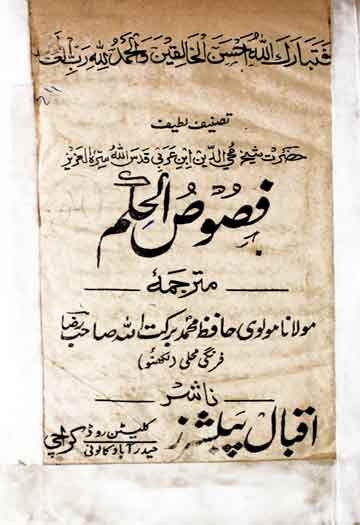 فتبارک اللہ احسن الخالقین والحمد للہ رب
تصنیف لطیف
حضرت شیخ محی الدین ابن عربی قدس اللہ سرہ العزیز
فصوص الحکم
مترجمہ
مولانا مولوی حافظ محمد برکت اللہ صاحب رضا
فرنگی محلی (لکھنو)
ناشر
اقبال پبلشرز کلیٹن روڈ کراچی
حیدرآباد کالونی